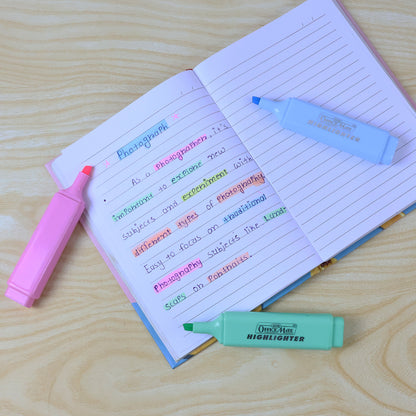 Photograph
As a photographer, it's
important to explore new
subjects and experiment with
different types of photography
Easy to focus on traditional
Photography subjects like Land
scaps or Portraits.
OFFICEMATE
HIGHLIGHTER
HIGHLIGHTER